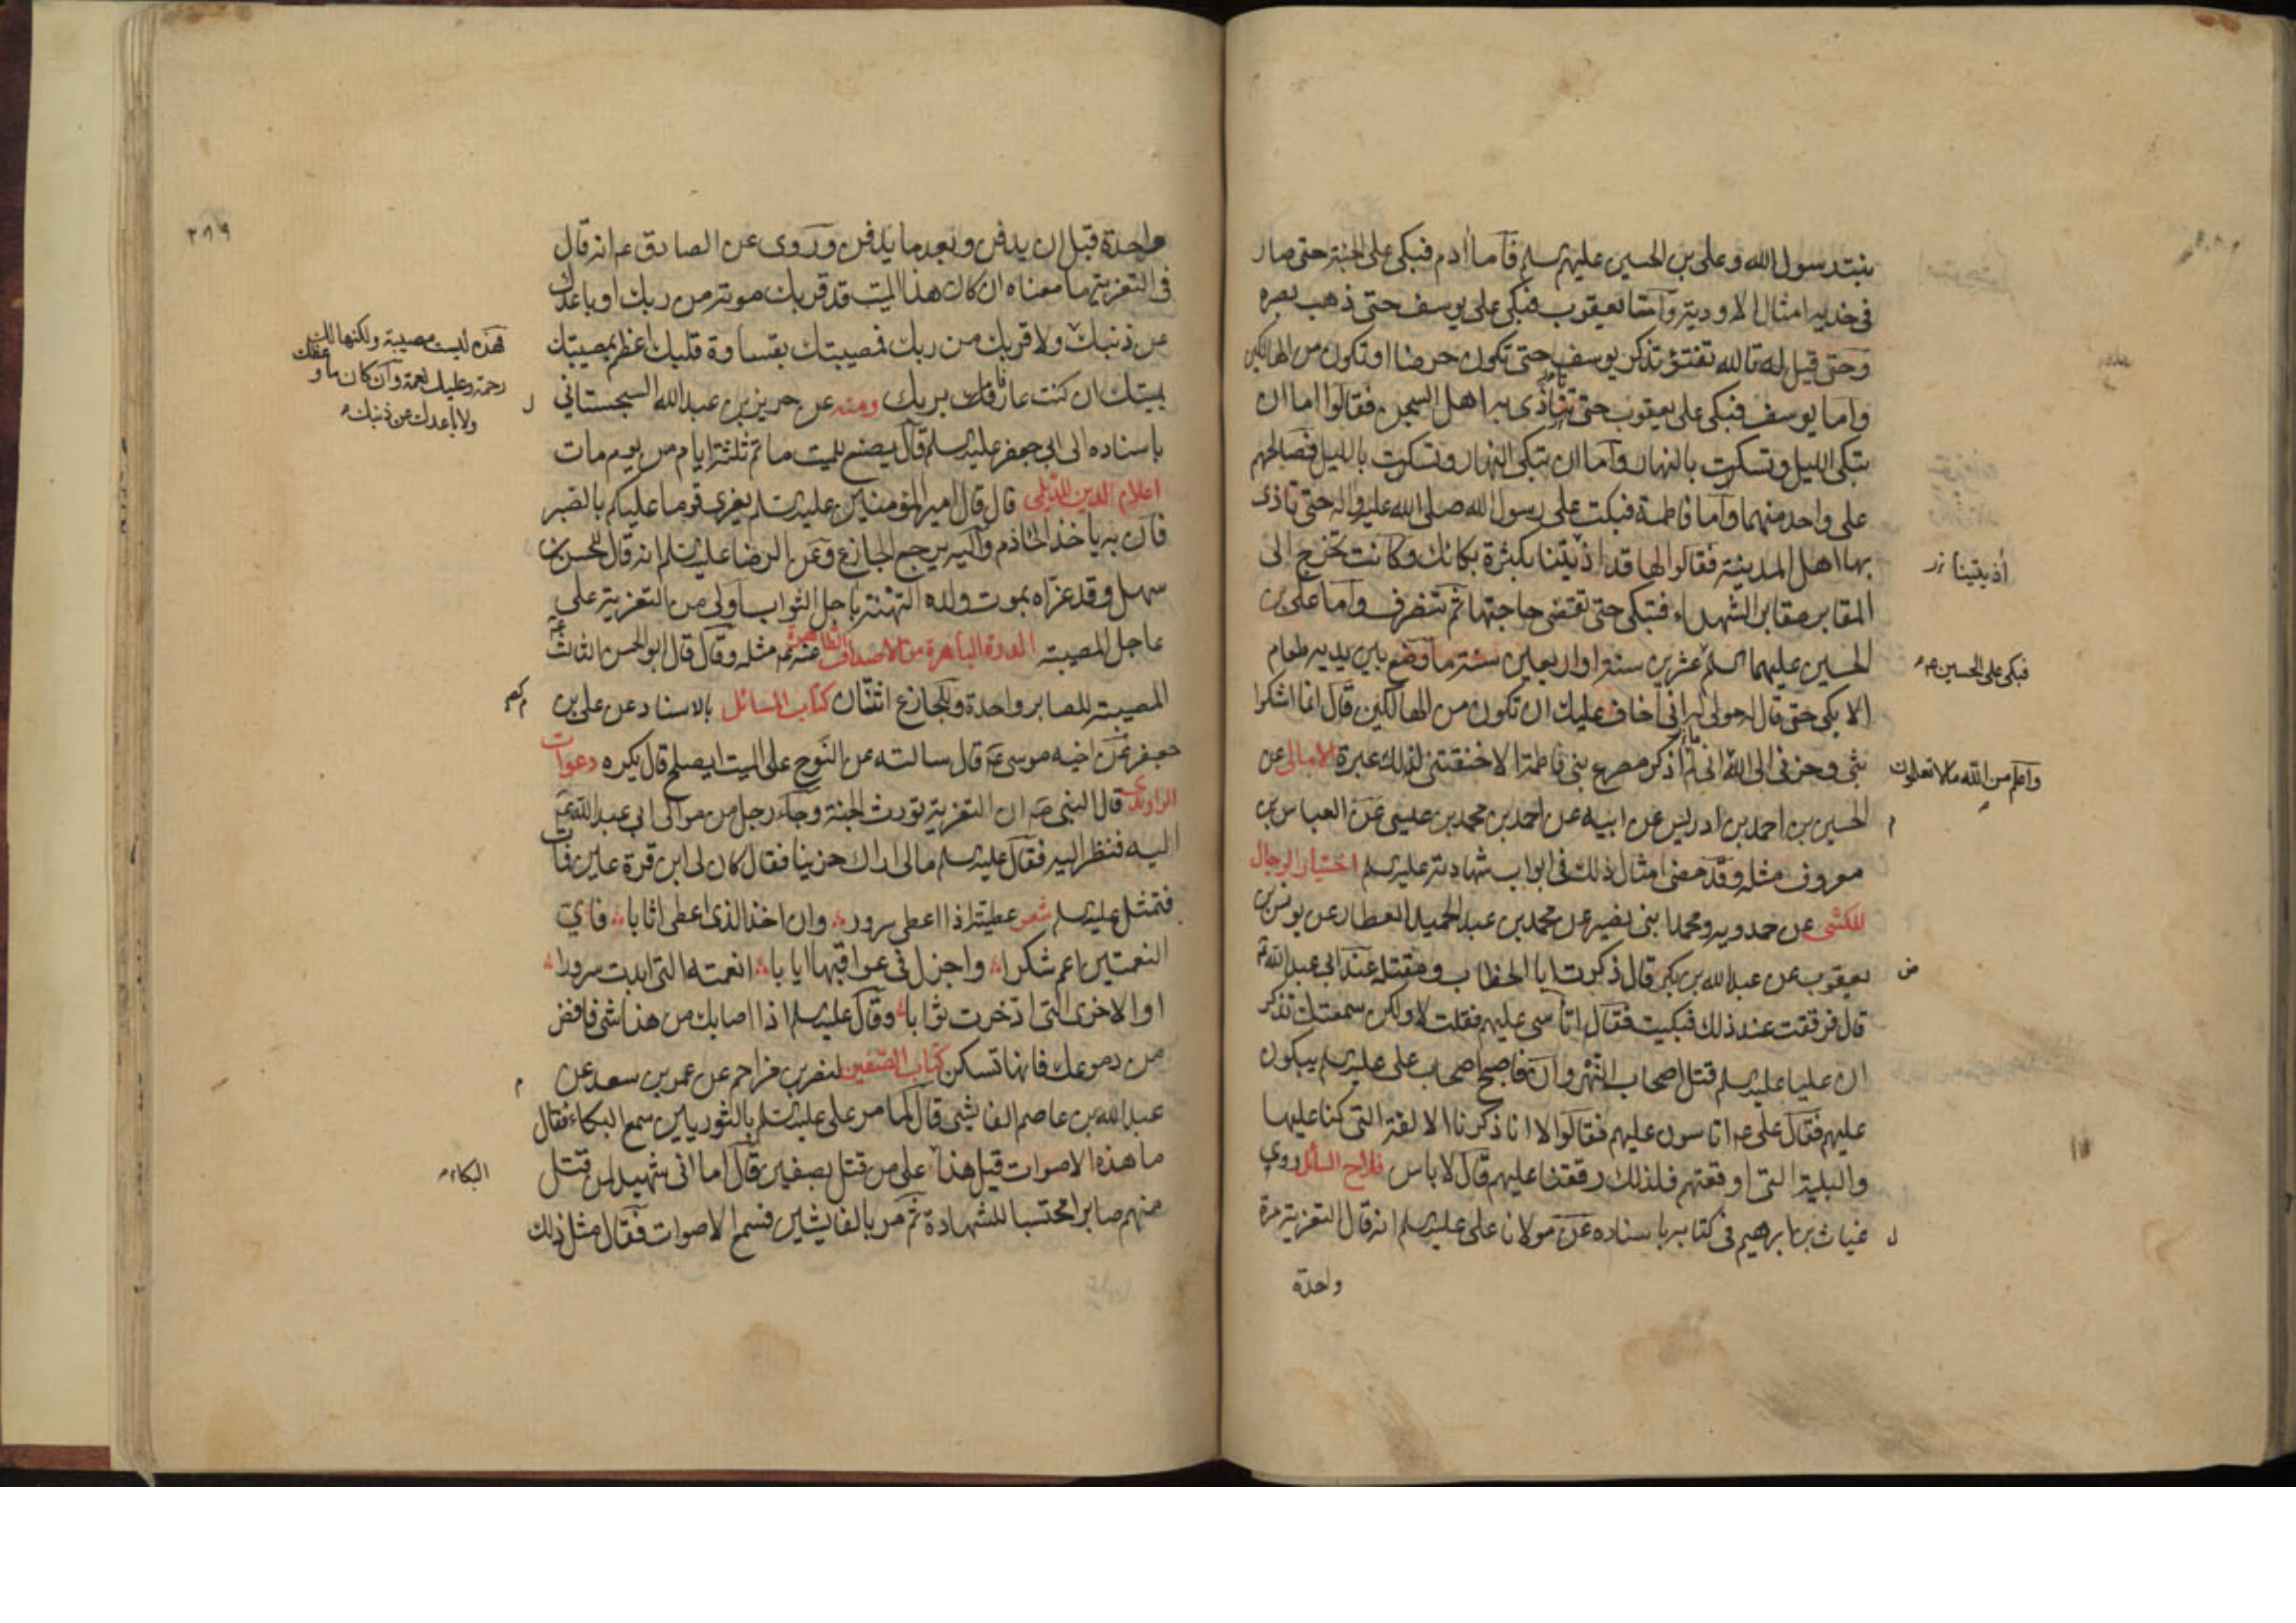 بنت رسول الله وعلى بن الحسين عليهم السلم فآما آدم فبكى على الجنة حتى صار
فى خديه امثال الاودية وآما يعقوب فبكى على يوسف حتى ذهب بصره
وحتى قيل له تالله تفتؤ تذكر يوسف حتى تكون حرضا او تكون من الهالكين
واما يوسف فبكى على يعقوب حتى تأذى به اهل السجن فقالوا اما ان
تبكى الليل وتسكت بالنهار وآما ان تبكى النهار وتسكت بالليل فصالحهم
على واحد منهما وآما فاطمة فبكت على رسول الله صلى الله عليه واله حتى تاذى
بها اهل المدينة فقالوا لها قد اذيتنا بكثرة بكائك وكانت تخرج الى
أذيتينا
المقابر مقابر الشهداء فتبكى حتى تقضى حاجتها ثم تنصرف وآما على بن
الحسين عليهما السلم عشرين سنة او اربعين سنة ما وضع بين يديه طعام
فبكى على الحسين
الا بكى حتى قال له مولى له انى اخاف عليك ان تكون من الهالكين قال انما اشكوا
بثى وحزنى الى الله انى لم اذكر مصرع بنى فاطمة الا خنقتنى لذلك عبرة الامالى عن
واعلم من الله ما لا تعلمون
الحسين بن احمد بن ادريس عن ابيه عن احمد بن محمد بن عيسى عن العباس بن
معروف مثله وقد مضى امثال ذلك فى ابواب شهادته عليه السلم اختيار الرجال
للكشى عن حمدويه ومحمد ابنى نصير عن محمد بن عبد الحميد العطار عن يونس بن
يعقوب عن عبد الله بن بكير قال ذكرت ابا الخطاب ومقتله عند ابى عبد الله
قال فرققت عند ذلك فبكيت فقال اتأسى عليهم فقلت لا ولكن سمعتك تذكر
ان عليا عليه السلم قتل اصحاب النهر فاصبح اصحاب على عليه السلم يبكون
عليهم فقال على اتاسون عليهم فقالوا لا انا ذكرنا الالفة التى كنا عليها
والبلية التى اوقعتهم فلذلك رققنا عليهم قال لا باس فلاح السائل روى
غياث بن ابرهيم فى كتابه باسناده عن مولانا على عليه السلم انه قال التعزية مرة
واحدة
٢٨٩
واحدة قبل ان يدفن وبعد ما يدفن وروى عن الصادق انه قال
فى التعزية ما معناه ان كان هذا الميت قد قربك موته من ربك او باعدك
عن ذنبك
فهذه ليست مصيبة ولكنها لك
رحمة وعليك نعمة وآن كان ما وعظك
ولا باعدك عن ذنبك
ولا قربك من ربك فمصيبتك بقساوة قلبك اعظم بمصيبتك
بميتك ان كنت عارفا بربك ومنه عن حريز بن عبد الله السجستانى
باسناده الى ابى جعفر عليه السلم قال يصنع للميت ماتم ثلثة ايام من يوم مات
اعلام الدين للديلمى قال قال امير المؤمنين عليه السلم يعزى قوما عليكم بالصبر
فان به ياخذ الحازم واليه يرجع الجازع وعن الرضا عليه السلم انه قال للحسن بن
سهل وقد عزاه بموت ولده التهنئة باجل الثواب اولى من التعزية على
عاجل المصيبة الدرة الباهرة من الاصداف الطاهرة عنه مثله وقال قال ابو الحسن الثالث
المصيبة للصابر واحدة وللجازع اثنتان كتاب المسائل بالاسناد عن على بن
جعفر عن اخيه موسى قال سالته عن النوح على الميت ايصلح قال يكره دعوات
الراوندى قال النبى ان التعزية تورث الجنة وجاء رجل من موالى ابى عبد الله
اليه فنظر اليه فقال عليه السلم مالى اراك حزينا فقال كان لى ابن قرة عين فمات
فتمثل عليه السلم شعر عطيته اذا اعطى سرور وان اخذ الذى اعطى اثابا فاى
النعمتين اعم شكرا واجزل فى عواقبها ايابا انعمته التى ابدت سرورا
او الاخرى التى ادخرت ثوابا وقال عليه السلم اذا اصابك من هذا شى فافض
من دموعك فانها تسكن كتاب الصفين لنصر بن مزاحم عن عمر بن سعد عن
عبد الله بن عاصم الفايشى قال لما مر على عليه السلم بالثوريين سمع البكاء فقال
ما هذه الاصوات قيل هذا
البكاء
على من قتل بصفين قال اما انى شهيد لمن قتل
منهم صابرا محتسبا للشهادة ثم مر بالفايشيين فسمع الاصوات فقال مثل ذلك